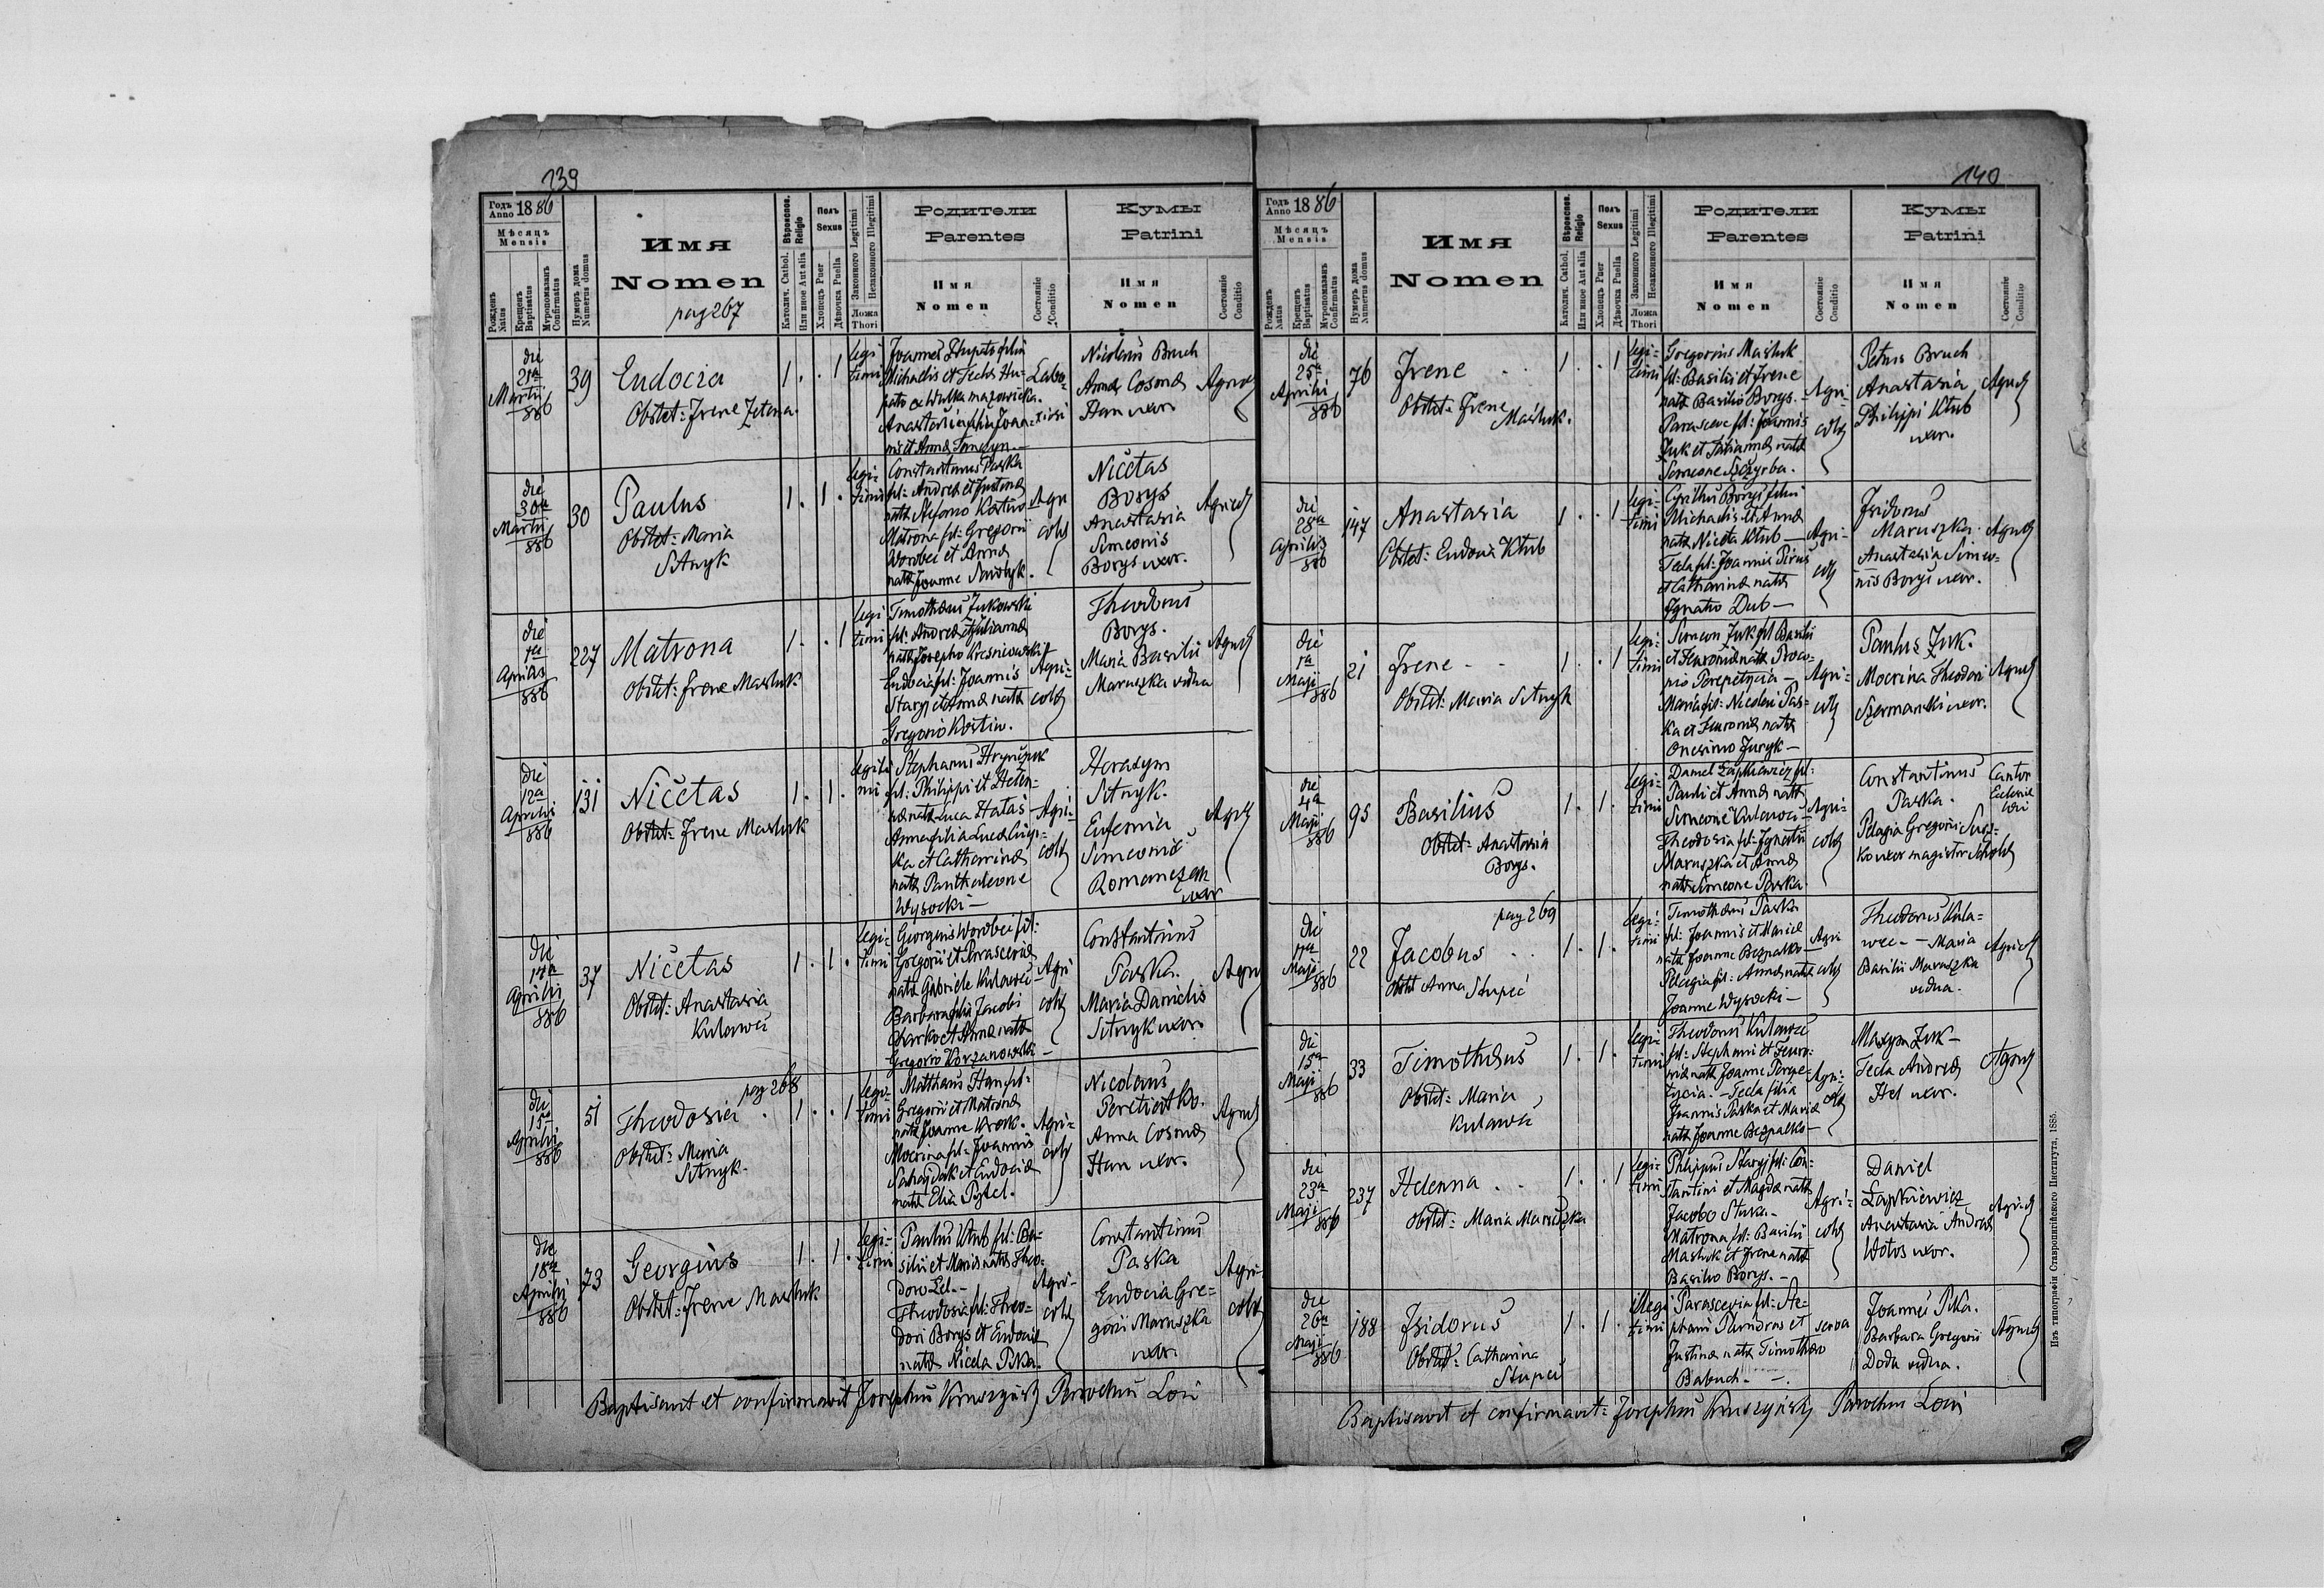 139
Годъ Anno 1886
Мѣсяцъ
Mensis
Рожденъ Natus
Крещенъ Baptisatus
Мѵропомазанъ Confirmatus
Нумеръ дома Numerus domus
Имя
Nomen
pag 267
Вѣроиспов. Religio
Католич. Cathol.
Или иное Aut alia
Полъ Sexus
Хлопецъ Puer
Дѣвочка Puella
Законного Legitimi
Незаконного Illegitimi
Ложа Thori
Родители
Parentes
Имя
Nomen
Состояніе Conditio
Кумы
Patrini
Имя
Nomen
Состояніе Conditio
die
21a
Martii
886
39
Eudocia
Obstet: Irene
1 . . 1
legi
timi
Joannes
Michaelis et Tecla
Anastasia filia Joan-
nis et Anna
Labo-
riosi
Nicolaus Bruch
Anna Cosmae
Han uxor
Agricolae
die
30a
Martii
886
30
Paulus
Obstet: Maria
Sitnyk
1 . 1 .
legi
timi
Constantinus Paska
fil: Andreae et Justinae
Matrona fil: Gregorii
Worobec et Annae
natae Joanne
Agri
colae
Nicetas
Borys
Anastasia
Simeonis
Borys uxor.
Agricolae
die
1a
Aprilis
886
227
Matrona
Obstet: Irene Masluk
1 . . 1
legi
timi
Timotheus Zukowski
fil: Andreae et Julianna
nata Josepho
Eudocia fil: Joannis
Staryj et Annae natae
Gregorio Kostiw.
Agri-
colae
Theodorus
Borys.
Maria Basilii
Maruszka vidua
Agricolae
die
12a
Aprilis
886
131
Nicetas
Obstet: Irene Masluk
1 . 1 .
legiti
mi
Stephanus Hryńczuk
fil: Philippi et Helen-
ae nata Luca
Anna filia Lucae
ka et Catharinae
natae Panthaleone
Wysocki —
Agri-
colae
Herasym
Sitnyk.
Eufemia
Simeonis
Romanczuk
uxor
Agricolae
die
17a
Aprilis
886
37
Nicetas
Obstet: Anastasia
Kulawec
1 . 1 .
legi-
timi
Georgius Worobec fil:
Gregorii et Parascevia
nata Gabriele Kulawec
Barbara filia Jacobi
Charko et Annae natae
Gregorio Korzanowski —
Agri
colae
Constantinus
Paska.
Maria Danielis
Sitnyk uxor.
Agri
pag 268
die
15a
Aprilis
886
51
Theodosia .
Obstet: Maria
Sitnyk.
1 . . 1
legi-
timi
Matthaeus Han fil:
Gregorii et Matronae
natae Joanne
Mocrina fil: Joannis
Sahajdak et Eudociae
natae Elia Pytel.
Agri-
colae
Nicolaus
Peretiatko.
Anna Cosmae
Han uxor.
Agricolae
die
18a
Aprilis
886
73
Georgius
Obstet: Irene Masluk
1 . 1 .
legi-
timi
Paulus Kłub fil: Ba-
silii et Maria natae Theo-
doro Lel. —
Theodosia fil: Theo-
dori Borys et Eudociae
natae Niceta Pika.
Agri-
colae
Constantinus
Paska
Eudocia Gre-
gorii Maruszka
uxor.
Agri-
colae
Baptisavit et confirmavit Josephus Kruszyński Parochus Loci
140
Годъ Anno 1886
Мѣсяцъ
Mensis
Рожденъ Natus
Крещенъ Baptisatus
Мѵропомазанъ Confirmatus
Нумеръ дома Numerus domus
Имя
Nomen
Вѣроиспов. Religio
Католич. Cathol.
Или иное Aut alia
Полъ Sexus
Хлопецъ Puer
Дѣвочка Puella
Законного Legitimi
Незаконного Illegitimi
Ложа Thori
Родители
Parentes
Имя
Nomen
Состояніе Conditio
Кумы
Patrini
Имя
Nomen
Состояніе Conditio
die
25a
Aprilis
886
76
Irene . .
Obstet: Irene
Masluk.
1 . . 1
legi-
timi
Gregorius Masluk
fil: Basilii et Irene
nata Basilio Borys. —
Parasceve fil: Joannis
Zuk et Tatianna nata
Simeone Szczyrba.
Agri-
colae
Petrus Bruch
Anastasia
Philippi Kłub
uxor.
Agricolae
die
28a
Aprilis
886
147
Anastasia
Obstet: Eudocia Kłub
1 . . 1
legi-
timi
Cyrillus Borys filius
Michaelis et Anna
nata Niceta Kłub —
Tecla fil: Joannis Pirus
et Catharina natae
Ignatio Dub —
Agri-
colae
Isidorus
Maruszka.
Anastasia Simeo-
nis Borys uxor.
Agricolae
die
1a
Maji
886
21
Irene - -
Obstet: Maria Sitnyk
1 . . 1
legi-
timi
Simeon Zuk fil Basilii
et Feuronia nata Proco-
pio Perepetycia —
Maria fil: Nicolai Pas-
ka et Feuronia nata
Onesimo Juryk —
Agri-
colae
Paulus Zuk.
Mocrina Theodori
Szermanski uxor.
Agricolae
die
4a
Maji
886
95
Basilius
Obstet: Anastasia
Borys.
1 . 1 .
legi-
timi
Daniel Łapkiewicz fil:
Pauli et Anna nata
Simeone Kulawec —
Theodosia fil: Ignatii
Maruszka et Anna
nata Simeone Paska.
Agri-
colae
Constantinus
Paska.
Pelagia Gregorii
ko uxor magistri scholae
Cantor
Ecclesiae
loci
pag 269
die
7a
Maji
886
22
Jacobus . .
Obstet Anna Stupec
1 . 1 .
legi-
timi
Timotheus Paska
fil: Joannis et Mariae
nata Joanne Bezpalko —
Pelagia fil: Anna nata
Joanne Wysocki —
Agri
colae
Theodorus Kula-
wec — Maria
Basilii Maruszka
vidua.
Agricolae
die
15a
Maji
886
33
Timotheus
Obstet: Maria
Kulawec
1 . 1 .
legi-
timi
Theodorus Kulawec
fil: Stephani et Feuro-
nia nata Joanne Perepe-
tycia. — Tecla filia
Joannis Paska et Maria
nata Joanne Bezpalko —
Agri-
colae
Maxym Zuk —
Tecla Andreae
Hel uxor.
Agricolae
die
23a
Maji
886
237
Helenna . .
Obstet: Maria Maruszka
1 . . 1
legi-
timi
Philippus Staryj fil: Con-
stantini et Magdae nata
Jacobo
Matrona fil: Basilii
Masluk et Irene nata
Basilio Borys. —
Agri-
colae
Daniel
Łapkiewicz
Anastasia Andreae
Wołos uxor.
Agricolae
die
26a
Maji
886
188
Isidorus
Obstet: Catharina
Stupec
1 . 1 .
illegi
timi
Parascevia fil: Ste-
phani et
Justina nata Timotheo
Babuch. —
serva
Joannes Pika.
Barbara Gregorii
Doda vidua.
Agricolae
Baptisavit et confirmavit: Josephus Kruszyński Parochus Loci
Изъ типографіи Ставропигійского Института, 1885.